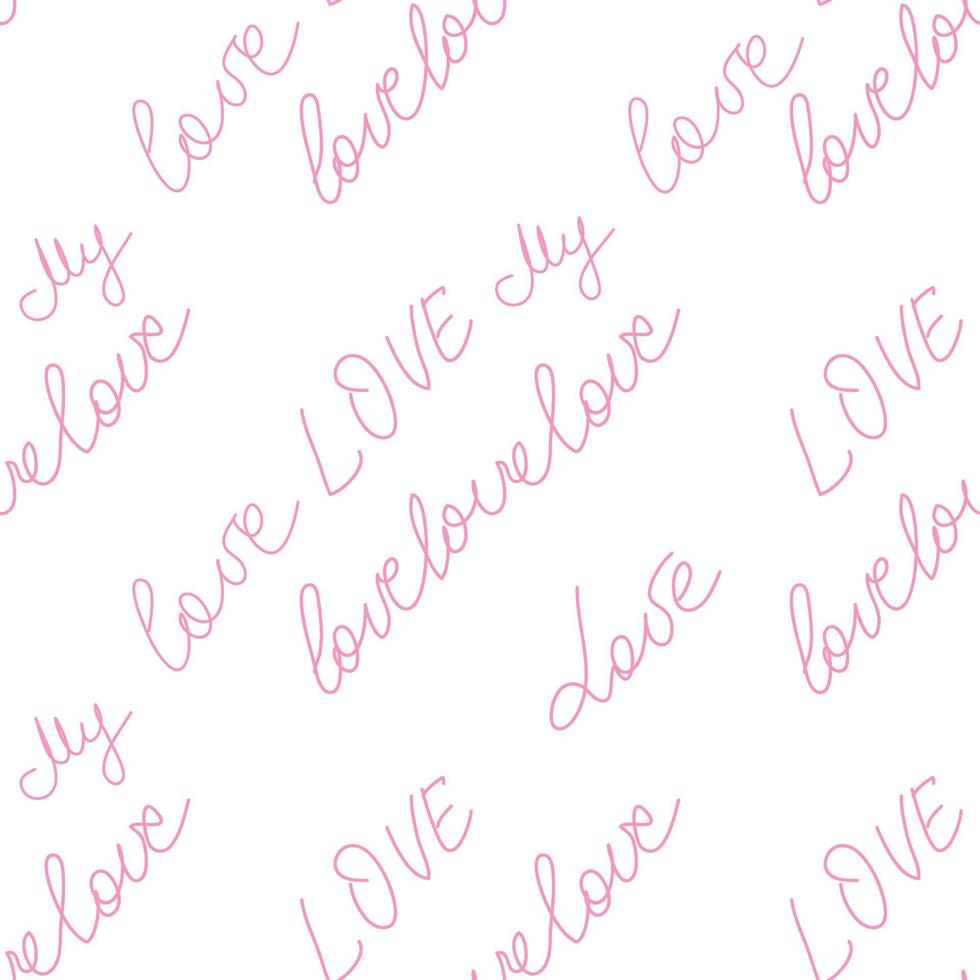 love
lovelo
love
lovelo
My
My
velove
LOVE
lovelovelove
LOVE
love
lovelo
Love
My
velove
LOVE
velove
LOVE